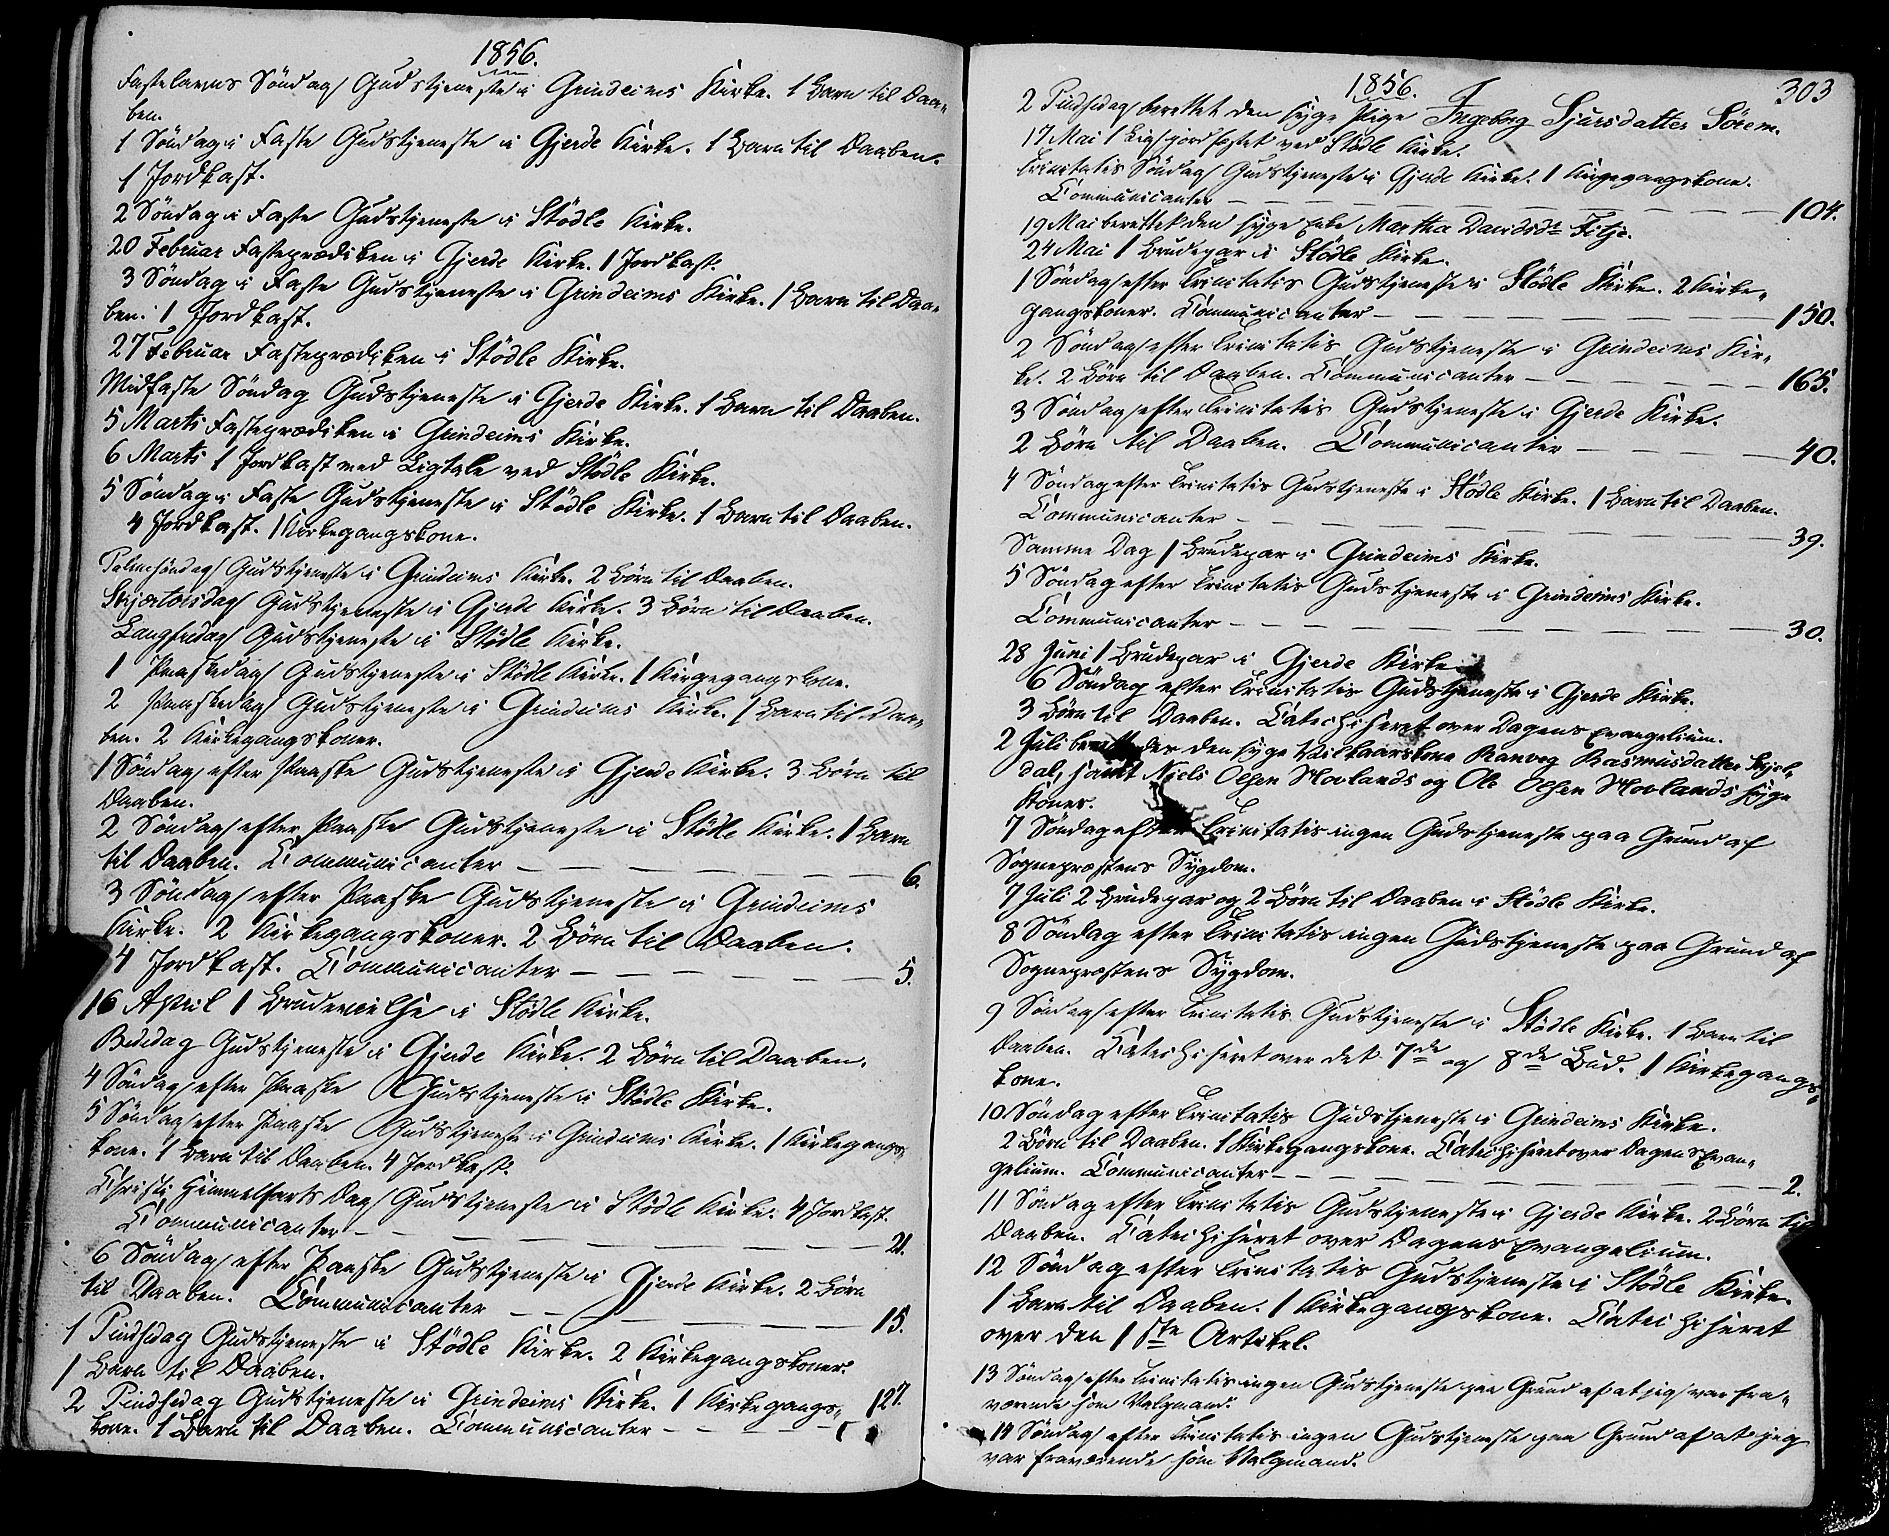 1856.
Fastelavns Söndag Gudstjeneste i Grindeims Kirke. 1 Barn til Daa-
ben.
1 Söndag i Faste Gudstjeneste i Gjerde Kirke. 1 Barn til Daaben.
1 Jordkast.
2 Söndag i Faste Gudstjeneste i Stödle Kirke.
20 Februar Fasteprædiken i Gjerde Kirke. 1 Jordkast.
3 Söndag i Faste Gudstjeneste i Grindeims Kirke. 1 Barn til Daa-
ben. 1 Jordkast.
27 Februar Fasteprædiken i Stödle Kirke.
Midfaste Söndag Gudstjeneste i Gjerde Kirke. 1 Barn til Daaben.
5 Marts Fasteprædiken i Grindeims Kirke.
6 Marts 1 Jordkast med Ligtale ved Stödle Kirke.
5 Söndag i Faste Gudstjeneste i Stödle Kirke. 1 Barn til Daaben.
4 Jordkast. 1 Kirkegangskone.
Palmesöndag Gudstjeneste i Grindeims Kirke. 2 Börn til Daaben.
Skjærtorsdag Gudstjeneste i Gjerde Kirke. 3 Börn til Daaben.
Langfredag Gudstjeneste i Stödle Kirke.
1 Paaskedag Gudstjeneste i Stödle Kirke. 1 Kirgegangskone.
2 Paaskedag Gudstjeneste i Grindeims Kirke. 1 Barn til Daa-
ben. 2 Kirkegangskoner.
1 Söndag efter Paaske Gudstjeneste i Gjerde Kirke. 3 Börn til
Daaben.
2 Söndag efter Paaske Gudstjeneste i Stödle Kirke. 1 Barn
til Daaben. Communicanter — — — — — — 6.
3 Söndag efter Paaske Gudstjeneste i Grindeims
Kirke. 2 Kirkegangskoner. 2 Börn til Daaben.
4 Jordkast. Communicanter — — — — — 5.
16 April 1 Brudevielse i Stödle Kirke.
Bededag Gudstjeneste i Gjerde Kirke. 2 Börn til Daaben.
4 Söndag efter Paaske Gudstjeneste i Stödle Kirke.
5 Söndag efter Paaske Gudstjeneste i Grindeims Kirke. 1 Kirkegangs-
kone. 1 Barn til Daaben. 4 Jordkast.
Christi Himmelfarts Dag Gudstjeneste i Stödle Kirke. 4 Jordkast.
Communicanter — — — — — — — — 21.
6 Söndag efter Paaske Gudstjeneste i Gjerde Kirke. 2 Börn
til Daaben. Communicanter — — — — — — 15.
1 Pindsedag Gudstjeneste i Stödle Kirke. 2 Kirkegangskoner.
1 Barn til Daaben.
2 Pindsedag Gudstjeneste i Grindeims Kirke. 1 Kirkegangs-
kone. 1 Barn til Daaben. Communicanter — — — — 127.
1856.
303
2 Pindsedag berettet den syge Pige Ingeborg Sjursdatter Sörem.
17 Mai 1 Lig jordfæstet ved Stödle Kirke.
Trinitatis Söndag Gudstjeneste i Gjerde Kirke. 1 Kirgegangskone.
Communicanter — — — — — — — — 104.
19 Mai berettet den syge Enke Martha Davidsdr Fitje.
24 Mai 1 Brudepar i Stödle Kirke.
1 Söndag efter Trinitatis Gudstjeneste i Stödle Kirke. 2 Kirke-
gangskoner. Communicanter — — — — — — 150.
2 Söndag efter Trinitatis Gudstjeneste i Grindeims Kir-
ke. 2 Börn til Daaben. Communicanter — — — — — 165.
3 Söndag efter Trinitatis Gudstjeneste i Gjerde Kirke.
2 Börn til Daaben. Communicanter — — — — 40.
4 Söndag efter Trinitatis Gudstjeneste i Stödle Kirke. 1 Barn til Daaben.
Communicanter — — — — — — — — 39.
Samme Dag 1 Brudepar i Grindeims Kirke.
5 Söndag efter Trinitatis Gudstjeneste i Grindeims Kirke.
Communicanter — — — — — — — — 30.
28 Juni 1 Brudepar i Gjerde Kirke.
6 Söndag efter Trinitatis Gudstjeneste i Gjerde Kirke.
3 Börn til Daaben. Catechiseret over Dagens Evangelium.
2 Juli den syge Vilkaarskone Ranveg Rasmusdatter Skjol-
dal, samt Niels Olsen Hovlands og Ole Olsen Hovlands syge
Koner.
7 Söndag efter Trinitatis ingen Gudstjeneste paa Grund af
Sognepræstens Sygdom.
7 Juli 2 Brudepar og 2 Börn til Daaben i Stödle Kirke.
8 Söndag efter Trinitatis ingen Gudstjeneste paa Grund af
Sognepræstens Sygdom.
9 Söndag efter Trinitatis Gudstjeneste i Stödle Kirke. 1 Barn til
Daaben. Catechiseret over det 7de og 8de Bud. 1 Kirkegangs-
kone.
10 Söndag efter Trinitatis Gudstjeneste i Grindeims Kirke.
2 Börn til Daaben. 1 Kirkegangskone. Catechiseret over Dagens Evan-
gelium. Communicanter — — — — — — — — 2.
11 Söndag efter Trinitatis Gudstjeneste i Gjerde Kirke. 2 Börn til
Daaben. Catechiseret over Dagens Evangelium.
12 Söndag efter Trinitatis Gudstjeneste i Stödle Kirke.
1 Barn til Daaben. 1 Kirkegangskone. Catechiseret
over den 1ste Artikel.
13 Söndag efter Trinitatis ingen Gudstjeneste paa Grund af at jeg var fra-
værende som Valgmand.
14 Söndag efter Trinitatis ingen Gudstjeneste paa Grund af at jeg
var fraværende som Valgmand.